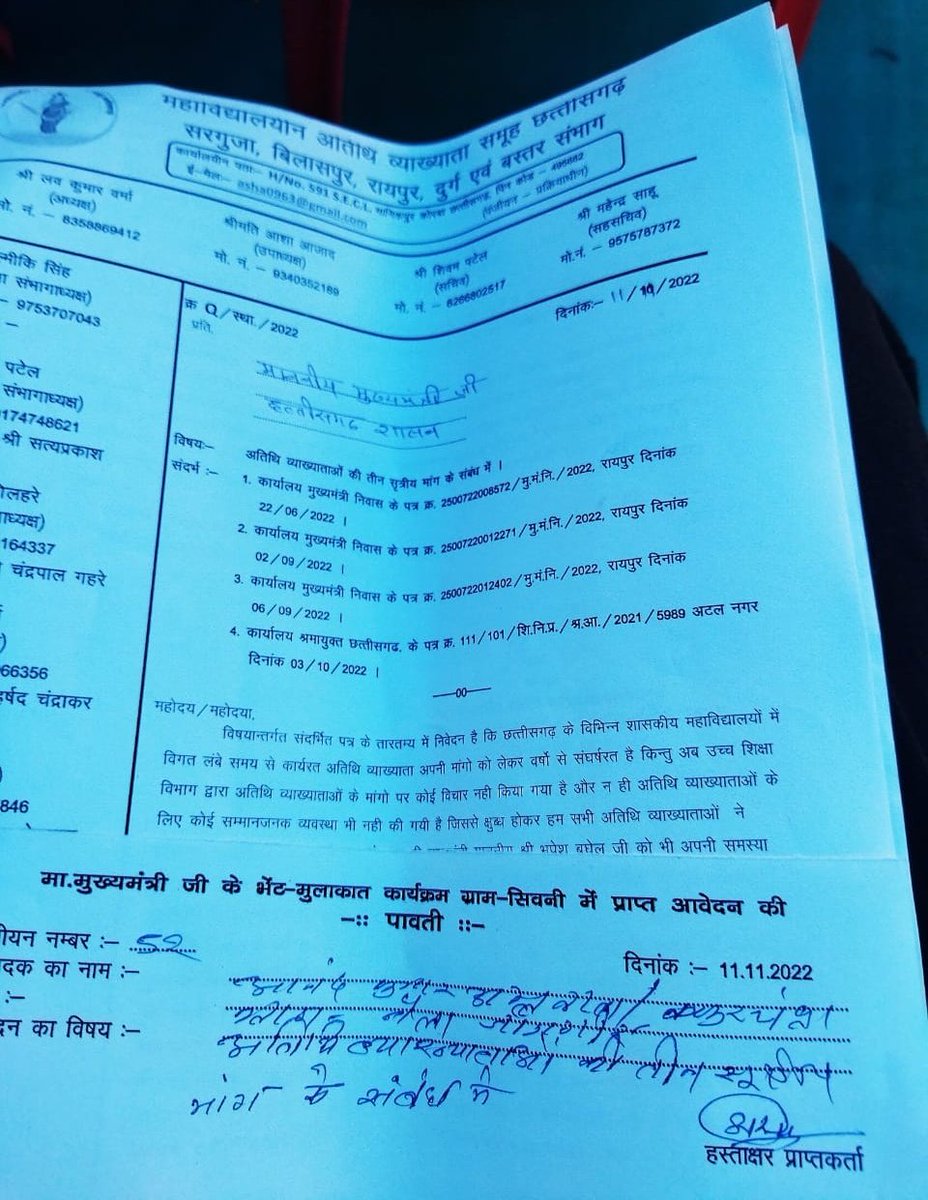 महाविद्यालयीन अतिथि व्याख्याता समूह छत्तीसगढ़
सरगुजा, बिलासपुर, रायपुर, दुर्ग एवं बस्तर संभाग
कार्यालयीन पता:- H/No. 591 S.E.C.L. छत्तीसगढ़, पिन कोड -
ई-मेल:- asha0963@gmail.com (पंजीयन - प्रक्रियाधीन)
श्री लव कुमार वर्मा
(अध्यक्ष)
मो. नं. - 8358869412
श्रीमति आशा आजाद
(उपाध्यक्ष)
मो. नं. - 9340352189
श्री शिवम पटेल
(सचिव)
मो. नं. - 8266802517
श्री महेन्द्र साहू
(सहसचिव)
मो.नं. - 9575787372
ल्मीकि सिंह
ा संभागाध्यक्ष)
- 9753707043
पटेल
संभागाध्यक्ष)
174748621
श्री सत्यप्रकाश
ोलहरे
ाध्यक्ष)
164337
चंद्रपाल गहरे
66356
हर्षद चंद्राकर
846
क्र Q/स्था./2022
दिनांक:- 11/10/2022
प्रति,
माननीय मुख्यमंत्री जी
छत्तीसगढ़ शासन
विषय:- अतिथि व्याख्याताओं की तीन सूत्रीय मांग के संबंध में ।
संदर्भ :- 1. कार्यालय मुख्यमंत्री निवास के पत्र क्र. 2500722008572/मु.मं.नि./2022, रायपुर दिनांक
22/06/2022 ।
2. कार्यालय मुख्यमंत्री निवास के पत्र क्र. 25007220012271/मु.मं.नि./2022, रायपुर दिनांक
02/09/2022 ।
3. कार्यालय मुख्यमंत्री निवास के पत्र क्र. 2500722012402/मु.मं.नि./2022, रायपुर दिनांक
06/09/2022 ।
4. कार्यालय श्रमायुक्त छत्तीसगढ. के पत्र क्र. 111/101/शि.नि.प्र./श्र.आ./2021/5989 अटल नगर
दिनांक 03/10/2022 ।
—00—
महोदय/महोदया,
विषयान्तर्गत संदर्भित पत्र के तारतम्य में निवेदन है कि छत्तीसगढ़ के विभिन्न शासकीय महाविद्यालयों में
विगत लंबे समय से कार्यरत अतिथि व्याख्याता अपनी मांगो को लेकर वर्षो से संघर्षरत है किन्तु अब उच्च शिक्षा
विभाग द्वारा अतिथि व्याख्याताओं के मांगो पर कोई विचार नही किया गया है और न ही अतिथि व्याख्याताओं के
लिए कोई सम्मानजनक व्यवस्था भी नही की गयी है जिससे क्षुब्ध होकर हम सभी अतिथि व्याख्याताओं ने
श्री भूपेश बघेल जी को भी अपनी समस्या
मा.मुख्यमंत्री जी के भेंट-मुलाकात कार्यक्रम ग्राम-सिवनी में प्राप्त आवेदन की
-:: पावती ::-
ीयन नम्बर :- 52
दिनांक :- 11.11.2022
दक का नाम :-
:-
दन का विषय :- अतिथि व्याख्याताओं की तीन सूत्रीय
मांग के संबंध में
हस्ताक्षर प्राप्तकर्ता